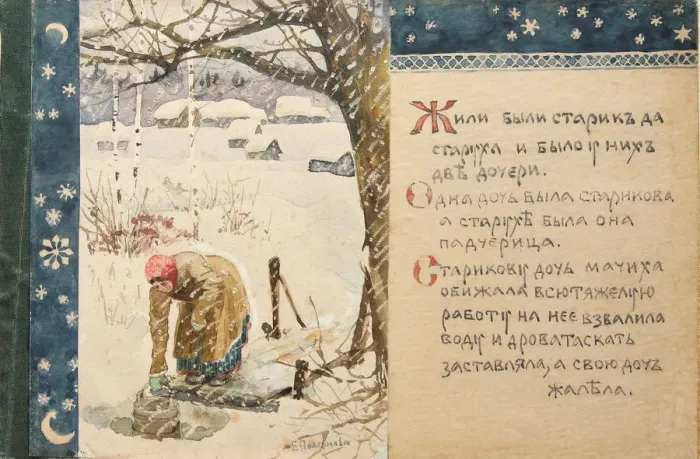 Жили были старикъ да
старуха и было у нихъ
двѣ дочери.
Одна дочь была старикова
а старухѣ была она
падчерица.
Старикову дочь мачиха
обижала всю тяжелую
работу на нее взвалила
воду и дрова таскать
заставляла, а свою дочь
жалѣла.
Е. Поленова